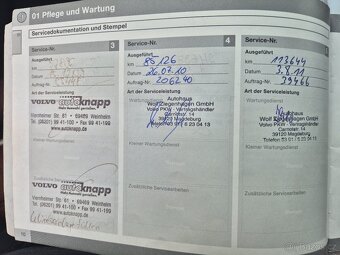 01 Pflege und Wartung
Servicedokumentation und Stempel
Service-Nr. 3
Ausgeführt
km
Datum
Auftrags-Nr.
Art der Serviceleistung
VOLVO autoknapp
Viernheimer Str. 61 • 69469 Weinheim
Tel. (06201) 99 41-100 • Fax 99 41-199
www.autoknapp.de
Zusätzliche Servicearbeiten
VOLVO autoknapp
Viernheimer Str. 61 • 69469 Weinheim
Tel. (06201) 99 41-100 • Fax 99 41-199
www.autoknapp.de
Service-Nr. 4
Ausgeführt
km 85126
Datum 26.07.10
Auftrags-Nr. 206240
Art der Serviceleistung
Autohaus
Wolf Ziegenhagen GmbH
Volvo PKW - Vertragshändler
Carnotstr. 14
39120 Magdeburg
Kleiner Wartungsdienst
Zusätzliche Servicearbeiten
Service-Nr.
Ausgeführt
km 113644
Datum 3.8.11
Auftrags-Nr. 39466
Art der Serviceleistung
Autohaus
Wolf Ziegenhagen GmbH
Volvo PKW - Vertragshändler
Carnotstr. 14
39120 Magdeburg
Kleiner Wartungsdienst
Zusätzliche Servicearbeiten
10